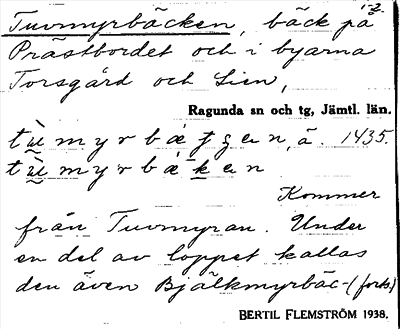 1-2.
Tuvmyrbäcken, bäck på
Prästbordet och i byarna
Torsgård och Lien,
Ragunda sn och tg, Jämtl. län.
tùmyrbäʈʂen, å. 1435.
tùmyrbäken
Kommer
från Tuvmyran. Under
en del av loppet kallas
den även Bjälkmyrbäc- (forts.)
BERTIL FLEMSTRÖM 1938.